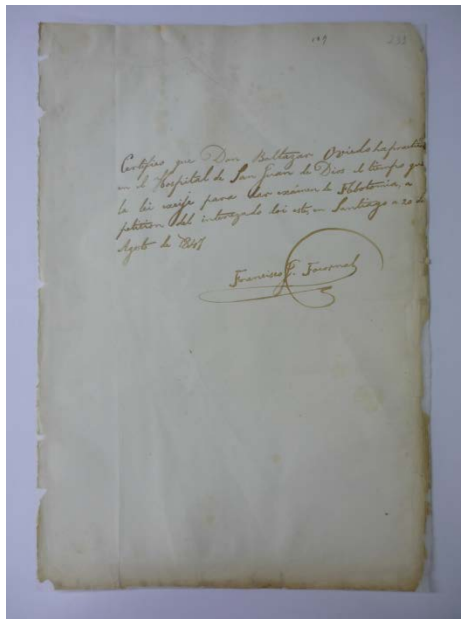 109 233
Certifico que Don Baltazar Oviedo ha practicado
en el Hospital de San Juan de Dios el tiempo que
la lei exije para dar exámen de Flebotomia, a
peticion del interezado doi este, en Santiago a 20 de
Agosto de 1847
Francisco J.